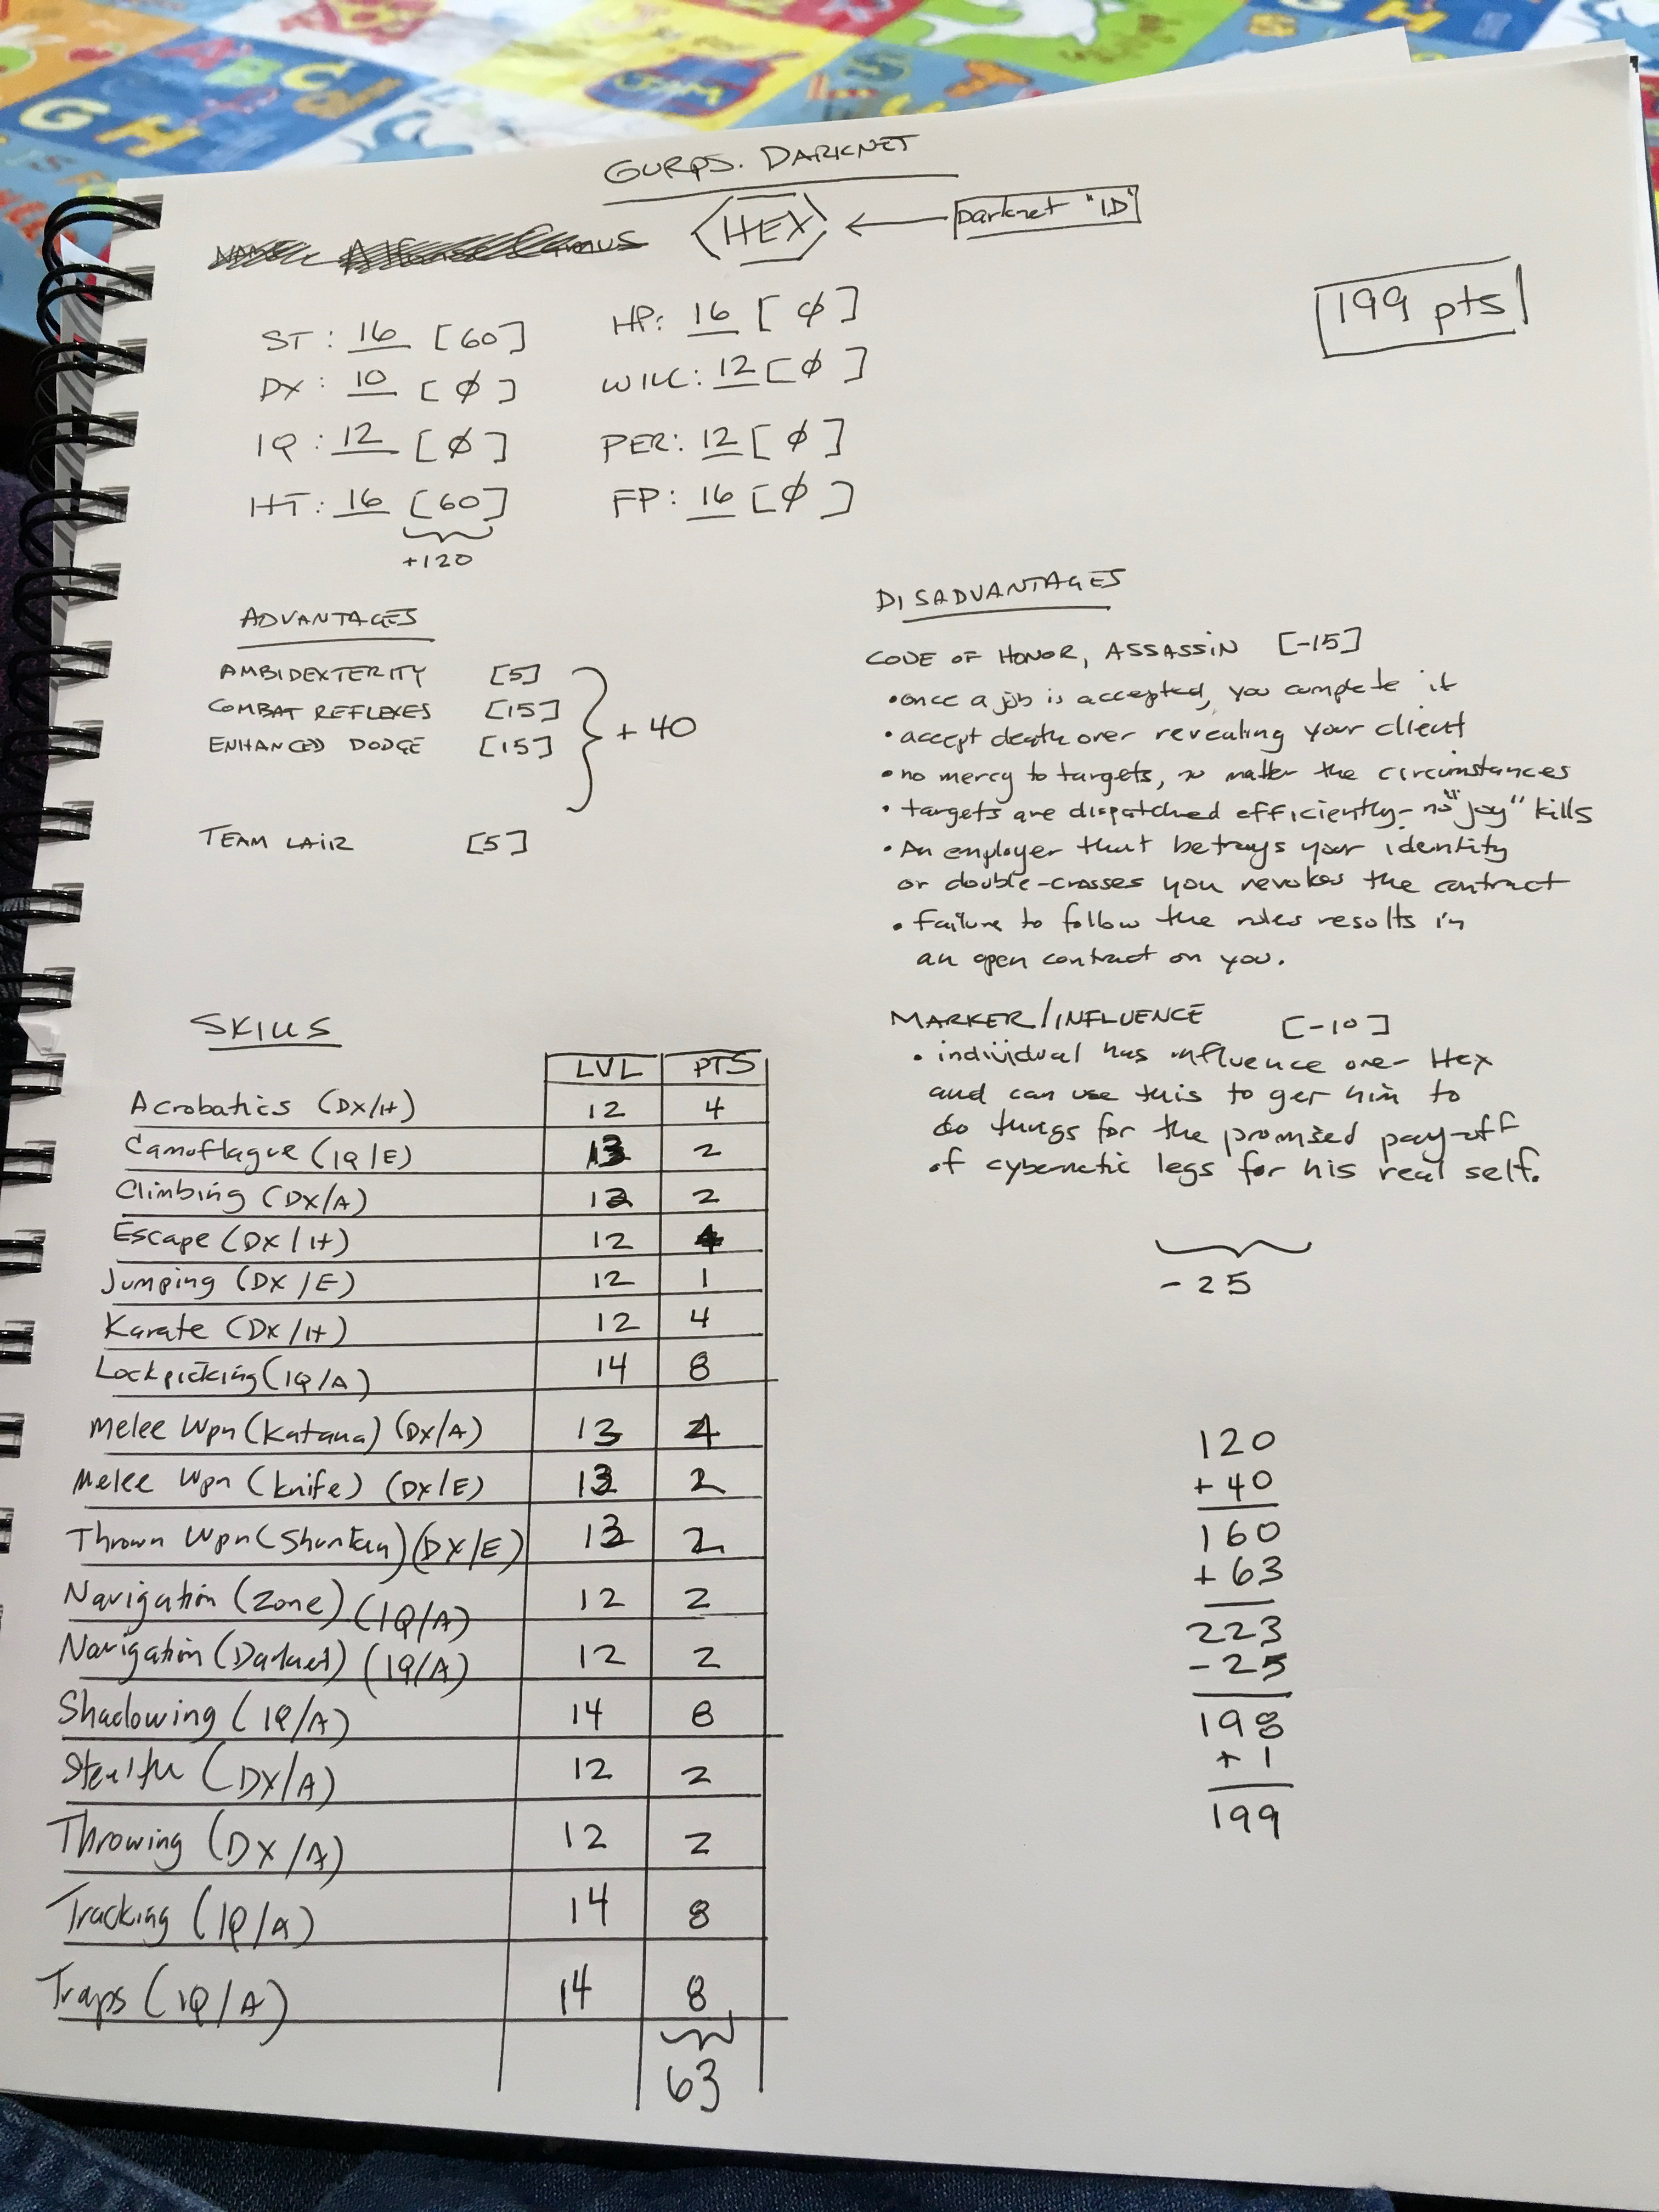 GURPS. DARKNET
<HEX> ← Darknet "ID"
199 pts
ST: 16 [60] HP: 16 [Ø]
DX: 10 [Ø] WILL: 12 [Ø]
IQ: 12 [Ø] PER: 12 [Ø]
HT: 16 [60] FP: 16 [Ø]
+120
ADVANTAGES
AMBIDEXTERITY [5]
COMBAT REFLEXES [15]
ENHANCED DODGE [15]
+ 40
TEAM LAIR [5]
DISADVANTAGES
CODE OF HONOR, ASSASSIN [-15]
• once a job is accepted, you complete it
• accept death over revealing your client
• no mercy to targets, no matter the circumstances
• targets are dispatched efficiently - no "joy" kills
• An employer that betrays your identity
or double-crosses you revokes the contract
• Failure to follow the rules results in
an open contract on you.
MARKER/INFLUENCE [-10]
• individual has influence over Hex
and can use this to get him to
do things for the promised pay-off
of cybernetic legs for his real self.
- 25
SKILLS
LVL PTS
Acrobatics (DX/H) 12 4
Camoflague (IQ/E) 13 2
Climbing (DX/A) 12 2
Escape (DX/H) 12 4
Jumping (DX/E) 12 1
Karate (DX/H) 12 4
Lockpicking (IQ/A) 14 8
Melee Wpn (Katana) (DX/A) 13 4
Melee Wpn (knife) (DX/E) 13 2
Thrown Wpn (Shuriken) (DX/E) 13 2
Navigation (Zone) (IQ/A) 12 2
Navigation (Darknet) (IQ/A) 12 2
Shadowing (IQ/A) 14 8
Stealth (DX/A) 12 2
Throwing (DX/A) 12 2
Tracking (IQ/A) 14 8
Traps (IQ/A) 14 8
63
120
+ 40
160
+ 63
223
- 25
198
+ 1
199
G H
A B C
G H